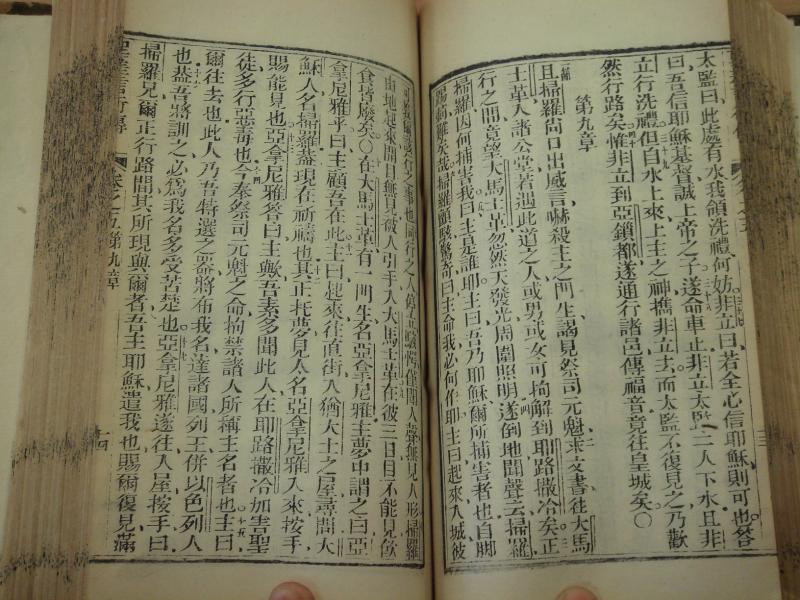 太監曰此處有水我領洗禮何妨非立曰若全心信耶穌則可也答
曰吾信耶穌基督誠上帝之子遂命車止非立太監二人下水且非
立行洗禮但自水上來上主之神攜非立去而太監不復見之乃歡
然行路矣惟非立到亞鎖都遂通行諸邑傳福音竟往皇城矣〇
第九章
且掃羅尚口出威言嚇殺主之門生謁見祭司元魁求文書往大馬
士革人諸公堂若遇此道之人或男或女可拘解到耶路撒冷矣正
行之間竟望大馬士革忽然天發光周圍照明遂倒地聞聲云掃羅
掃羅因何捕害我曰主是誰耶主曰吾乃耶穌爾所捕害者也自脚
踢刺難矣哉掃羅顫駭驚奇曰主命我必何作耶主曰起來入城彼
可教爾該行之事也同行之人偉立駭愕僅聞人聲無見人形掃羅
由地起來開目無見被人引手入大馬士革在彼三日目不能見飲
食皆廢矣〇在大馬士革有一門生名亞拿尼雅主夢中謂之曰亞
拿尼雅乎曰主顧吾在此主曰起來往直街入猶大士之屋尋問大
穌人名掃羅蓋現在祈禱也其正托夢見太名亞拿尼雅入來按手
賜能見也亞拿尼雅答曰主歟吾素多聞此人在耶路撒冷加害聖
徒多行惡毒也今奉祭司元魁之命拘禁諸人所稱主名者也主曰
爾往去也此人乃吾特選之器將布我名達諸國列王併以色列人
也蓋吾將訓之必為我名多受苦楚也亞拿尼雅遂往入屋按手曰
掃羅兄爾正行路間其所現與爾者吾主耶穌遣我也賜爾復見滿
卷之五第九章
十四